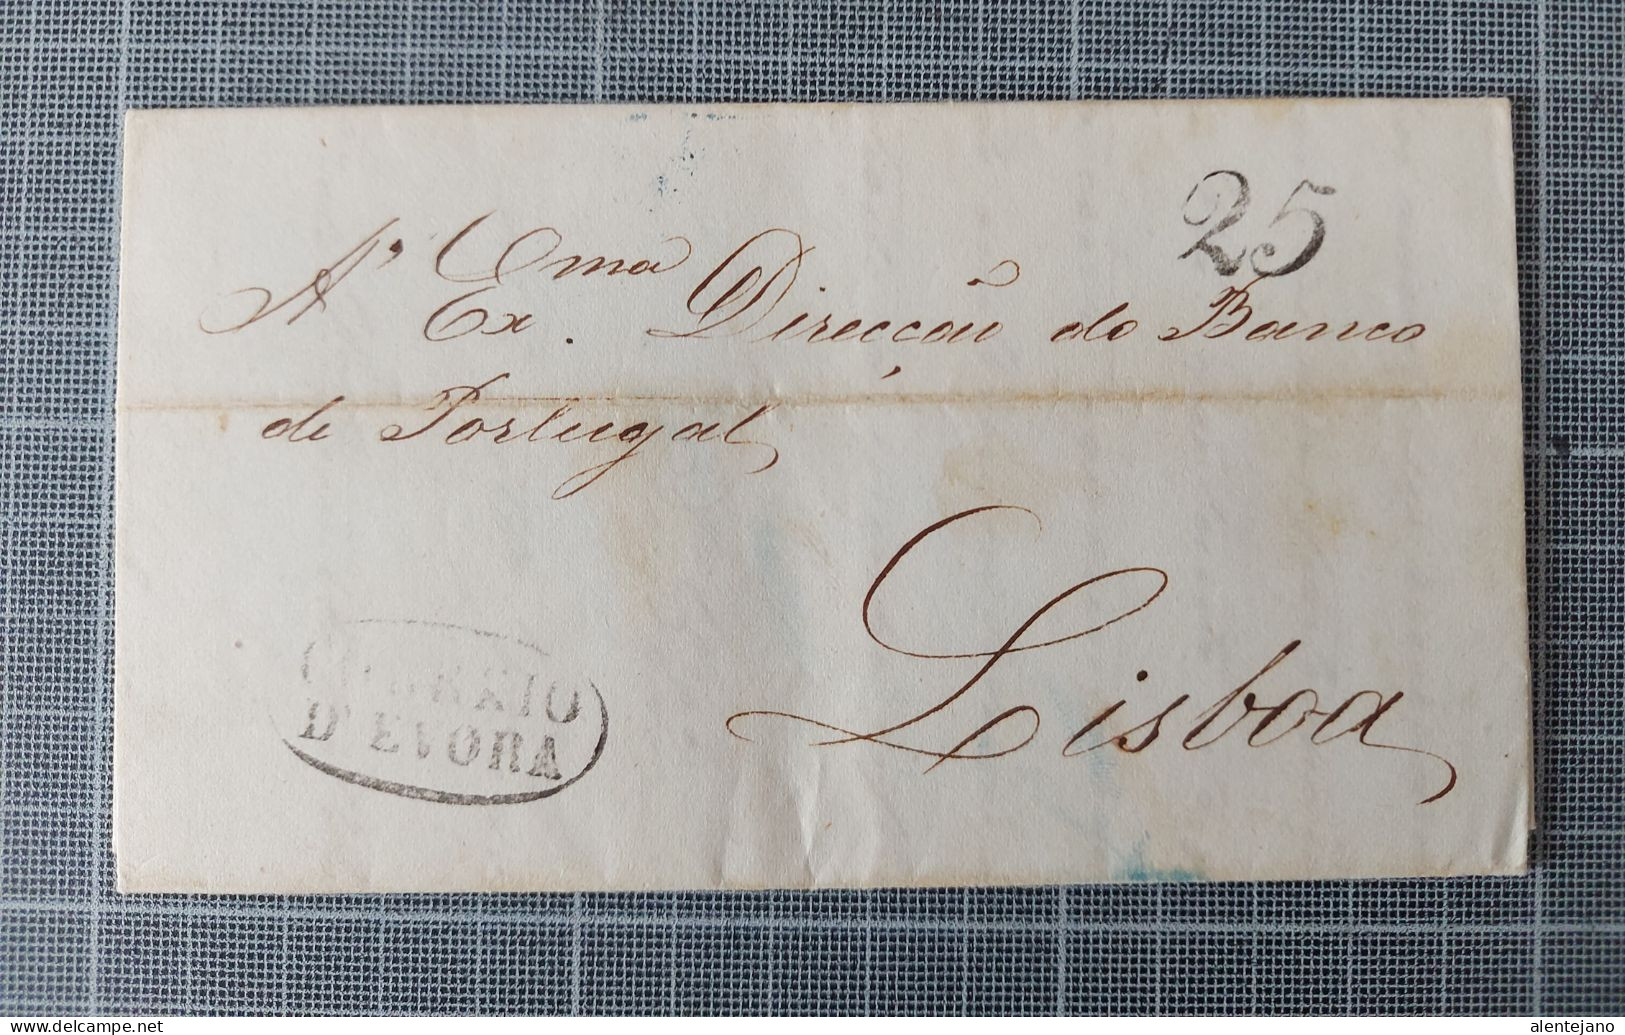 25
A' Exma. Direcção do Banco
de Portugal
Lisboa
CORREIO
D'EIORA
delcampe.net
alentejano